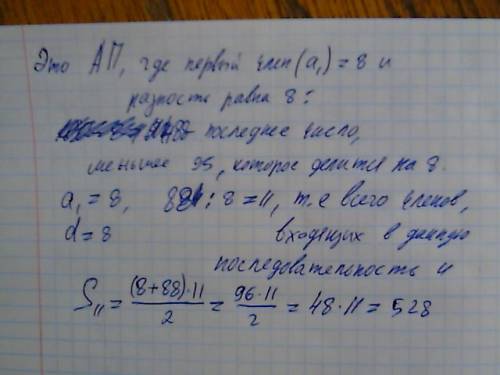 Это АП, где первый член (a₁) = 8 и
разность равна 8:
последнее число,
меньшее 95, которое делится на 8.
a₁ = 8, 88 : 8 = 11, т.е всего членов,
d = 8 входящих в данную
последовательность 11
S₁₁ = (8+88)·11 / 2 = 96·11 / 2 = 48·11 = 528